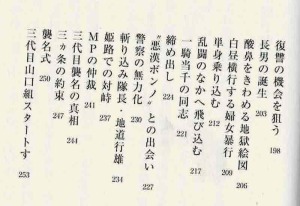 復讐の機会を狙う 198
長男の誕生 203
酸鼻をきわめる地獄絵図 206
白昼横行する婦女暴行 209
単身乗り込む 212
乱闘のなかへ飛び込む 217
一騎当千の同志 221
締め出し 224
“悪漢ボンノ”との出会い 227
警察の無力化 230
斬り込み隊長・地道行雄 234
姫路での対峙 237
MPの仲裁 241
三代目襲名の真相 244
三ヵ条の約束 247
襲名式 250
三代目山口組スタートす 253